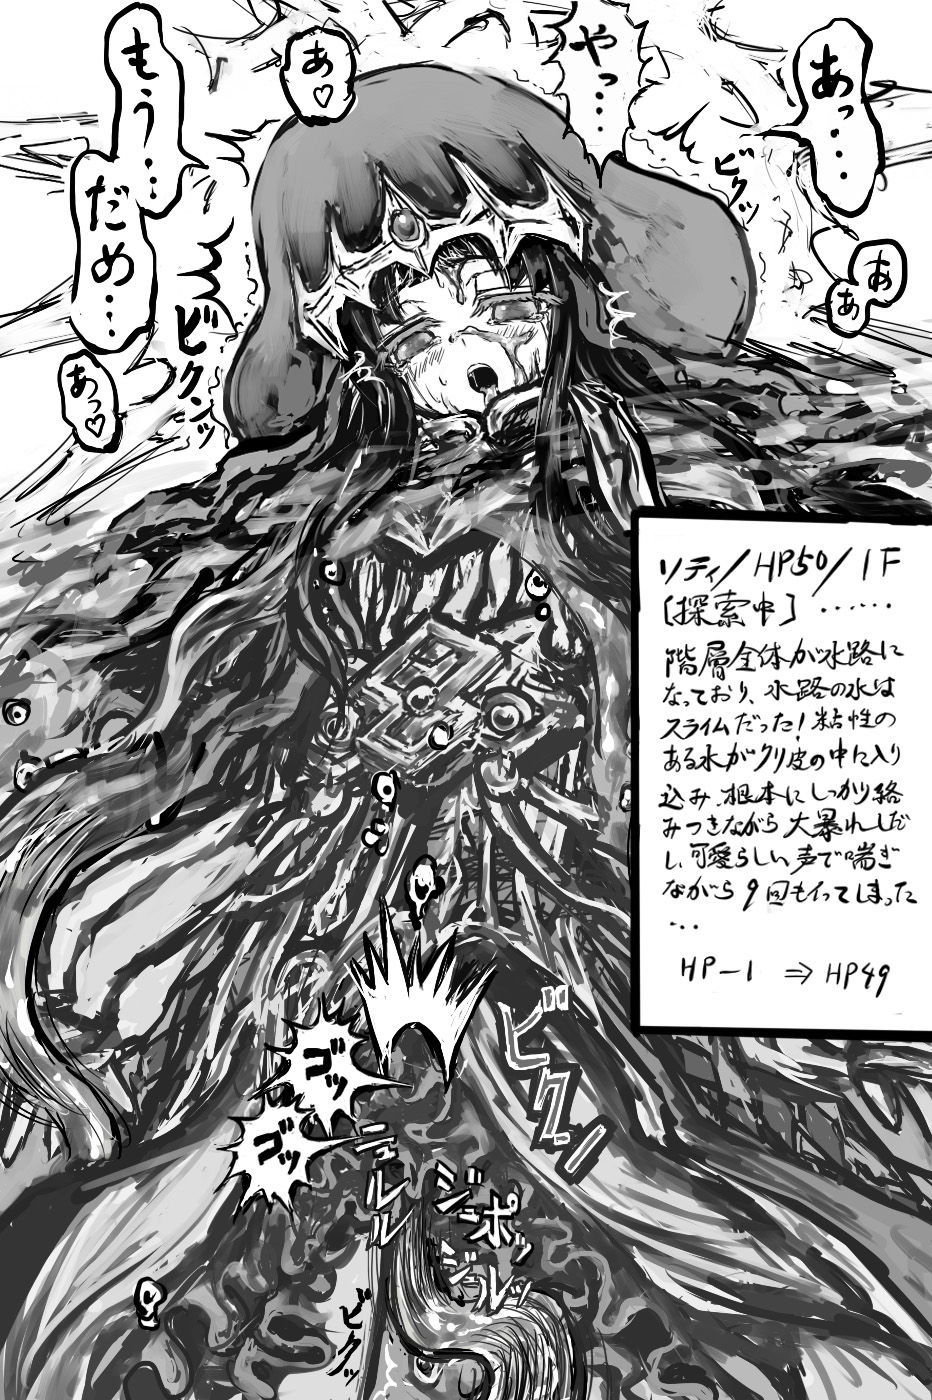 あっ…
やっ…
あ♡
もう…
だめ…
あっ♡
ああ
ビクッ
ビクンッ
ソティ/HP50/1F
[探索中]……
階層全体が水路に
なっており、水路の水は
スライムだった!粘性の
ある水がクリ皮の中に入り
込み、根本にしっかり絡
みつきながら大暴れしだ
し、可愛らしい声で喘ぎ
ながら9回もイってしまった
…
HP-1 ⇒ HP49
ビクン
ゴッ
ゴッ
ニュルルル
ジュポッ
ジュルッ
ビクッ